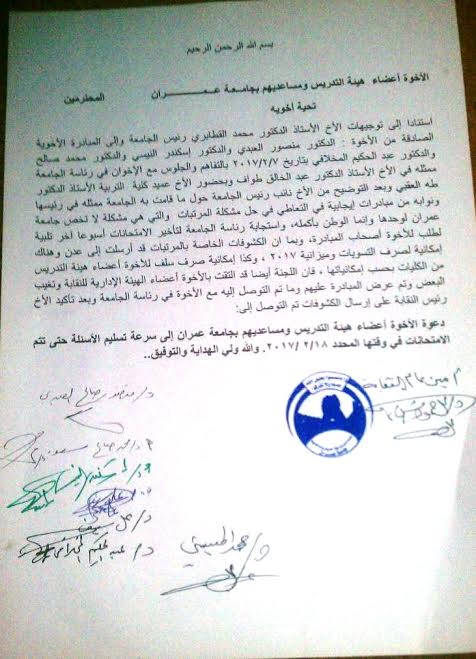 بسم الله الرحمن الرحيم
الأخوة أعضاء هيئة التدريس ومساعديهم بجامعة عمــــــران المحترمين
تحية أخويه
استنادا إلى توجيهات الأخ الأستاذ الدكتور محمد القطابري رئيس الجامعة وإلى المبادرة الأخوية
الصادقة من الأخوة : الدكتور منصور العبدي والدكتور إسكندر النيسي والدكتور محمد صالح
والدكتور عبد الحكيم المخلافي بتاريخ ٢٠١٧/٢/٧ بالتفاهم والجلوس مع الإخوان في رئاسة الجامعة
ممثله في الأخ الأستاذ الدكتور عبد الخالق طواف وبحضور الأخ عميد كلية التربية الأستاذ الدكتور
طه العقبي وبعد التوضيح من الأخ نائب رئيس الجامعة حول ما قامت به الجامعة ممثله في رئيسها
ونوابه من مبادرات إيجابية في التعاطي في حل مشكلة المرتبات والتي هي مشكلة لا تخص جامعة
عمران لوحدها وإنما الوطن بأكمله، واستجابة رئاسة الجامعة لتأخير الامتحانات أسبوعا آخر تلبية
لطلب للأخوة أصحاب المبادرة، وبما ان الكشوفات الخاصة بالمرتبات قد أرسلت إلى عدن وهناك
إمكانية لصرف التسويات وميزانية ٢٠١٧ ، وكذا إمكانية صرف سلف للأخوة أعضاء هيئة التدريس
من الكليات بحسب إمكانياتها ، فان اللجنة أيضا قد التقت بالأخوة أعضاء الهيئة الإدارية للنقابة وتغيب
البعض وتم عرض المبادرة عليهم وما تم التوصل إليه مع الأخوة في رئاسة الجامعة وبعد تأكيد الأخ
رئيس النقابة على إرسال الكشوفات تم التوصل إلى:
دعوة الأخوة أعضاء هيئة التدريس ومساعديهم بجامعة عمران إلى سرعة تسليم الأسئلة حتى تتم
الامتحانات في وقتها المحدد ٢/١٨ /٢٠١٧. والله ولي الهداية والتوفيق..
أمين عام النقابة
د/ منصور صالح العبدي
د/ محمد صالح
د/ علي
د/ عبد الحكيم المخلافي
د/ محمد